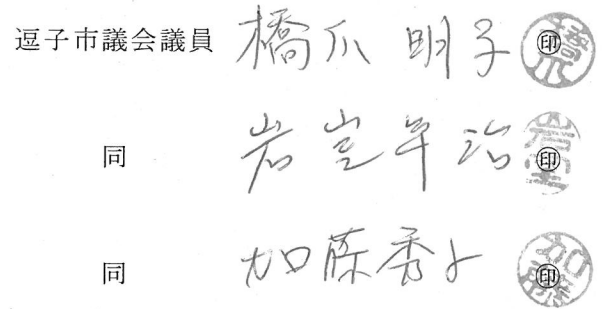 逗子市議会議員 橋爪 明子 ㊞ 橋爪
同 岩室年治 ㊞ 岩室
同 加藤秀子 ㊞ 加藤